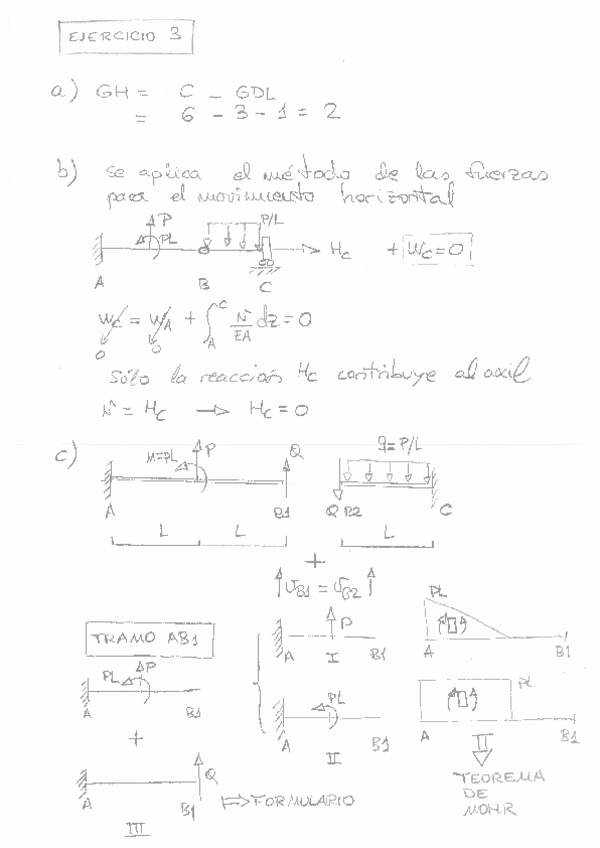 EJERCICIO 3
a) GH = C - GDL
= 6 - 3 - 1 = 2
b) Se aplica el método de las fuerzas
para el movimiento horizontal
P
P/L
PL
Hc + Wc=0
A B C
Wc = WA + ∫ₐᶜ N/EA dz = 0
0 0
Sólo la reacción Hc contribuye al axil
N = Hc → Hc = 0
c)
M=PL P Q q=P/L
A B1 Q B2 C
L L L
+
VB1 = VB2
TRAMO AB1
P PL
A I B1 A B1
PL P
A B1
PL PL
A II B1 A B1
+
Q
A B1 ⇒ FORMULARIO
III
TEOREMA
DE
MOHR